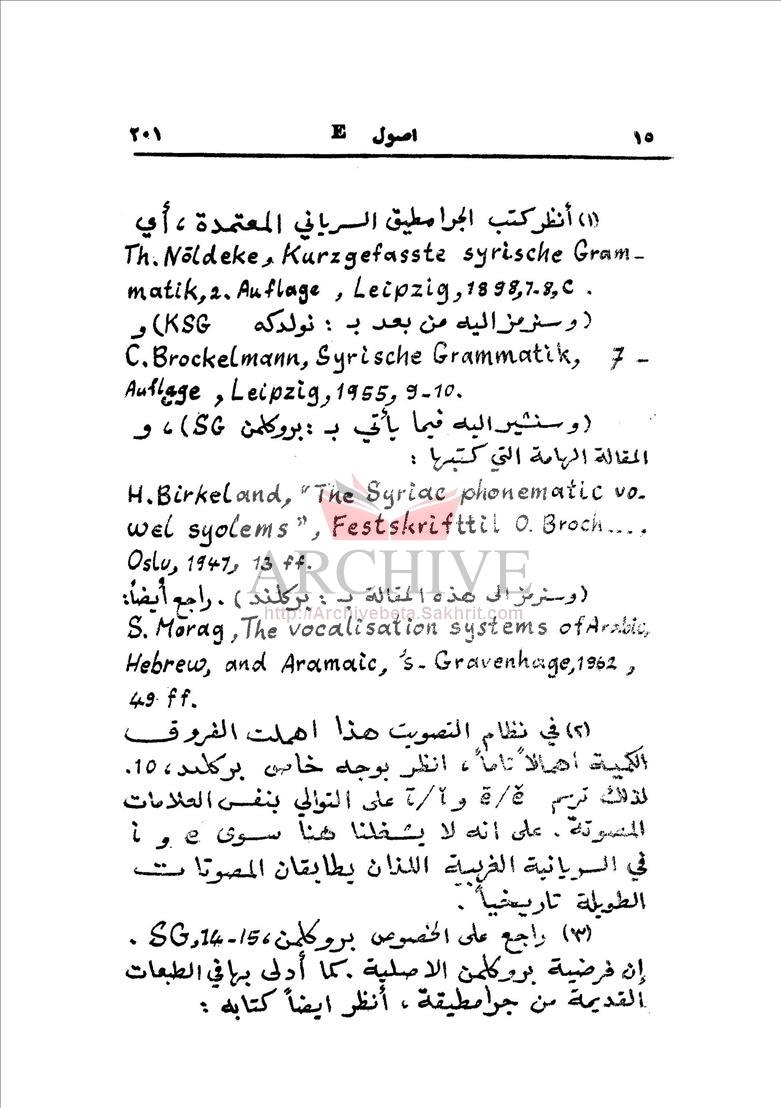 ١٥ اصول E ٢٠١
(١) أنظر كتب الجرامطيق السرياني المعتمدة ، أي
Th. Nöldeke, Kurzgefasste syrische Gram-
matik, 2. Auflage , Leipzig, 1898, 7-8, C .
(وسنرمز اليه من بعد بـ : نولدكه KSG) و
C. Brockelmann, Syrische Grammatik, 7 -
Auflage , Leipzig, 1955, 9-10.
(وسنشير اليه فيما يأتي بـ : بروكلمن SG) ، و
المقالة الهامة التي كتبها :
H. Birkeland, "The Syriac phonematic vo-
wel syolems", Festskrifttil O. Broch....,
Oslu, 1947, 13 ff.
ARCHIVE
(وسنرمز الى هذه المقالة بـ : بركلند ) . راجع أيضاً:
http://Archivebeta.Sakhrit.com
S. Morag, The vocalisation systems of Arabic,
Hebrew, and Aramaic, 's- Gravenhage, 1962 ,
49 ff.
(٢) في نظام التصويت هذا اهملت الفروق
الكمية اهمالاً تاماً ، انظر بوجه خاص بركلند ، 10.
لذلك ترسم ē/ĕ و ī/ĭ على التوالي بنفس العلامات
المصوتة . على انه لا يشغلنا هنا سوى e و i
في السريانية الغربية اللذان يطابقان المصوتات
الطويلة تاريخياً .
(٣) راجع على الخصوص بروكلمن ، SG, 14-15 .
إن فرضية بروكلمن الاصلية . كما أدلى بها في الطبعات
القديمة من جرامطيقة ، أنظر ايضاً كتابه :